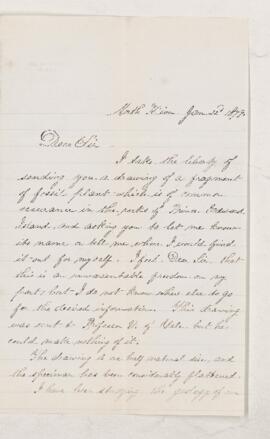 North River Jan 22d 187
Dear Sir
I take the liberty of
sending you a drawing of a fragment
of fossil plant which is of common
occurance in the rocks of Prince Edward
Island, and asking you to let me know
its name or tell me where I would find
it out for myself. I feel, Dear Sir, that
this is an unwarrantable freedom on my
part; but I do not know where else to go
for the desired information. This drawing
was sent to Professor V. of Yale, but he
could make nothing of it.
The drawing is one half natural size, and
the specimen has been considerably flattened.
I have been studying the geology of our